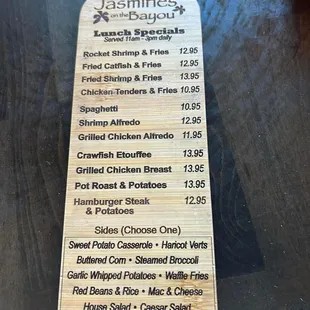 Jasmines
on the Bayou
Lunch Specials
Served 11am - 3pm daily
Rocket Shrimp & Fries 12.95
Fried Catfish & Fries 12.95
Fried Shrimp & Fries 13.95
Chicken Tenders & Fries 10.95
Spaghetti 10.95
Shrimp Alfredo 12.95
Grilled Chicken Alfredo 11.95
Crawfish Etouffee 13.95
Grilled Chicken Breast 13.95
Pot Roast & Potatoes 13.95
Hamburger Steak 12.95
& Potatoes
Sides (Choose One)
Sweet Potato Casserole • Haricot Verts
Buttered Corn • Steamed Broccoli
Garlic Whipped Potatoes • Waffle Fries
Red Beans & Rice • Mac & Cheese
House Salad • Caesar Salad